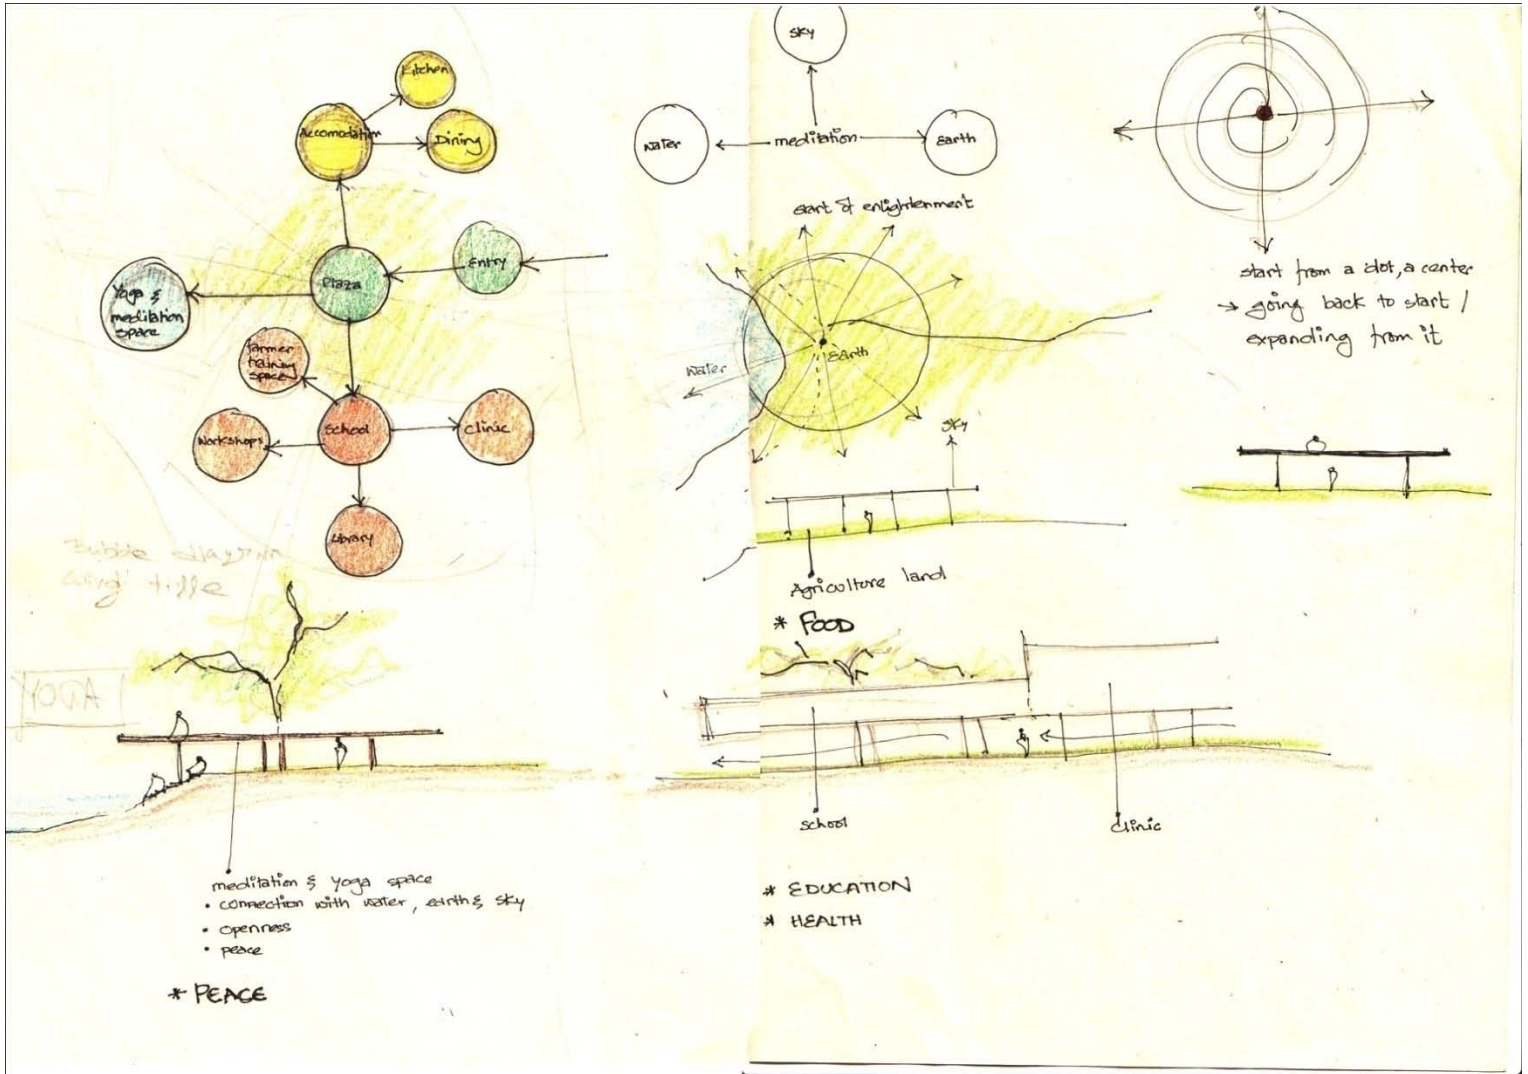 Kitchen
Accomodation
Dining
Entry
Plaza
Yoga &
meditation
space
farmer
training
space
School
Clinic
Workshops
Library
Bubble diagram
YOGA
meditation & yoga space
• connection with water, earth & sky
• openness
• peace
* PEACE
Sky
water
meditation
Earth
start of enlightenment
Earth
water
sky
Agriculture land
* FOOD
school
clinic
* EDUCATION
* HEALTH
start from a dot, a center
→ going back to start /
expanding from it